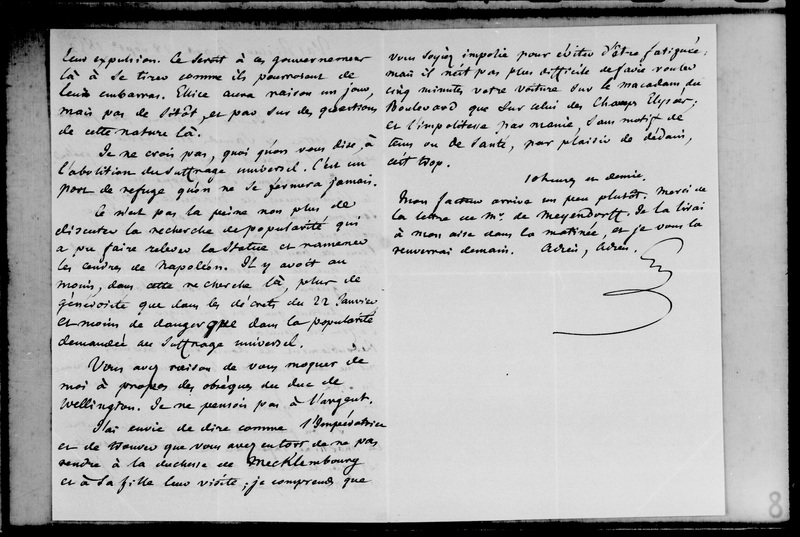 leur expulsion. Ce seroit à ces gouvernemens
là à se tirer comme ils pourroient de
leur embarras. Ellice aura raison un jour,
mais pas de sitôt, et pas sur des questions
de cette nature là.
Je ne crois pas, quoi qu'on vous dise, à
l'abolition du suffrage universel. C'est un
port de refuge qu'on ne se fermera jamais.
Ce n'est pas la peine non plus de
discuter la recherche de popularité qui
a pu faire relever la statue et ramener
les cendres de Napoléon. Il y avoit au
moins, dans cette recherche là, plus de
générosité que dans les décrets du 22 Janvier
et moins de danger que dans la popularité
demandée au suffrage universel.
Vous avez raison de vous moquer de
moi à propos des obsèques du duc de
Wellington. Je ne pensois pas à l'argent.
J'ai envie de dire comme l'Impératrice
et de trouver que vous avez eu tort de ne pas
rendre à la duchesse de Mecklembourg
et à sa fille leur visite ; je comprends que
vous soyiez impolie pour éviter d'être fatiguée ;
mais il n'est pas plus difficile de faire rouler
cinq minutes votre voiture sur le macadam du
Boulevard que sur celui des Champs Elysées ;
et l'impolitesse par manie, sans motif de
tems ou de santé, par plaisir de dédain,
c'est trop.
10 heures et demie.
Mon facteur arrive un peu plutôt. Merci de
la lettre de Mr. de Meyendorff. Je la lirai
à mon aise dans la matinée, et je vous la
renverrai demain. Adieu, Adieu.
8